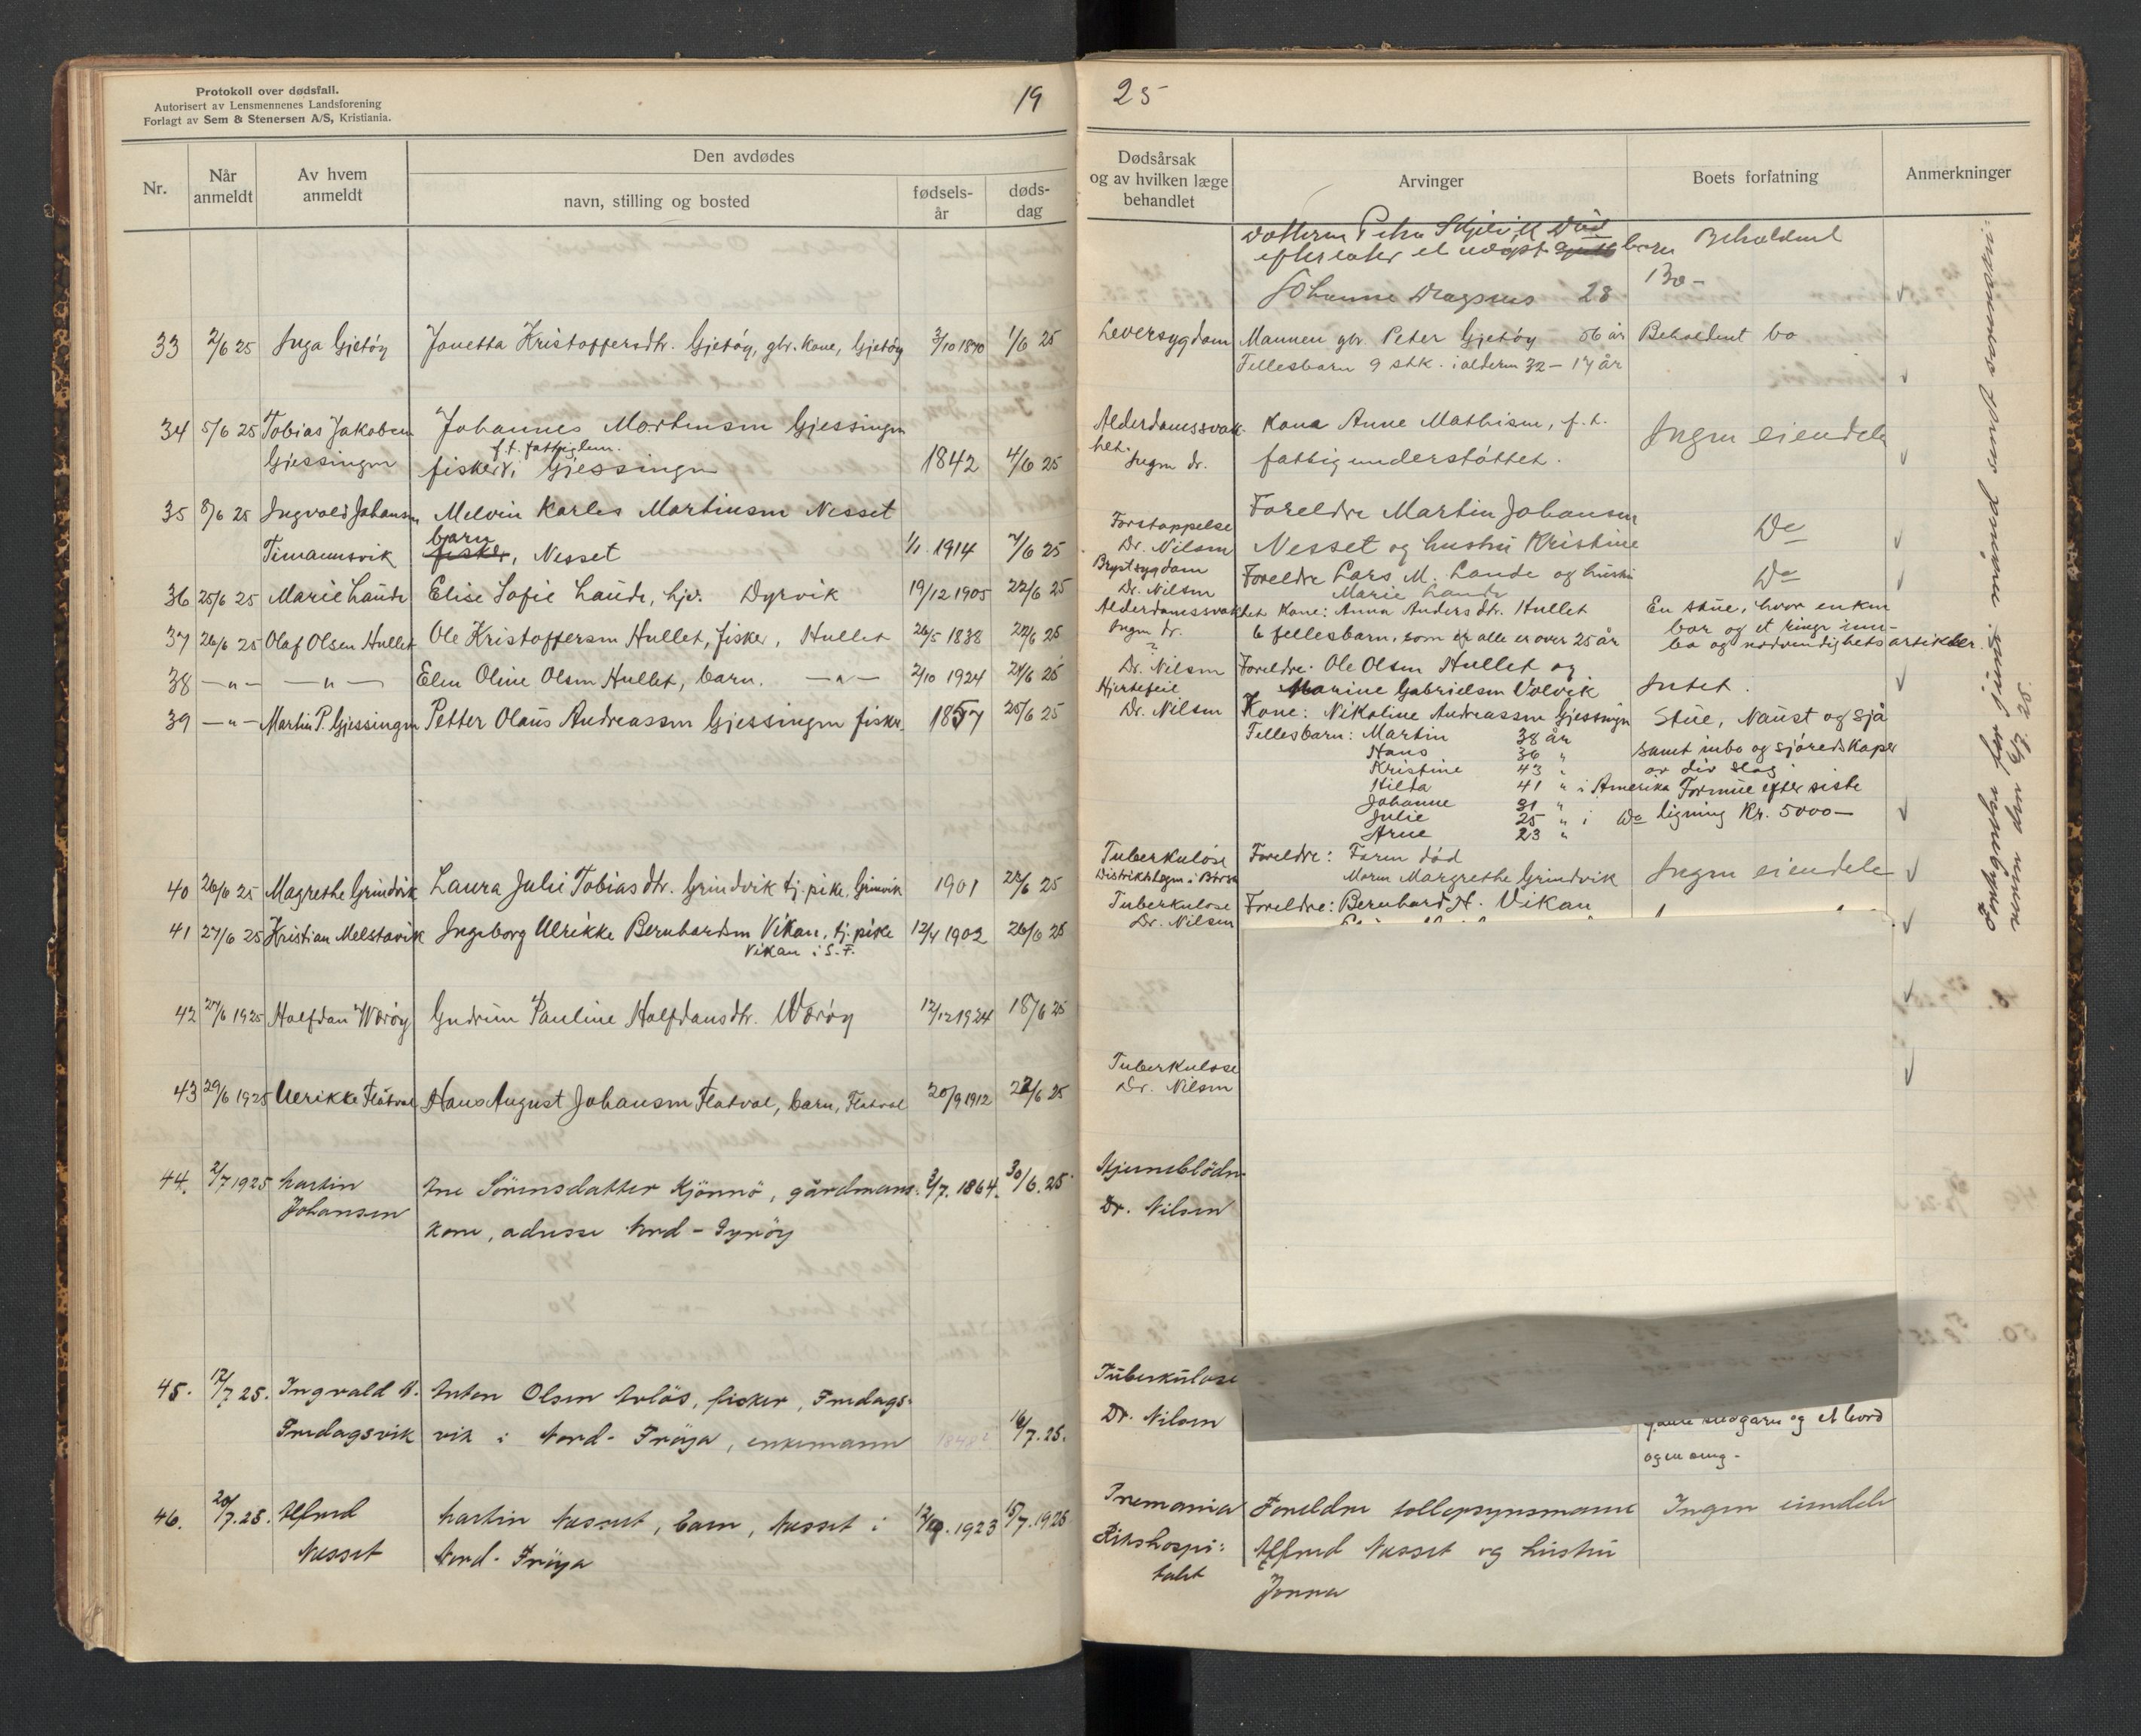 Protokoll over dødsfall.
Autorisert av Lensmennenes Landsforening
Forlagt av Sem & Stenersen A/S, Kristiania.
19
Nr.
Når anmeldt
Av hvem anmeldt
Den avdødes
navn, stilling og bosted
fødsels-år
døds-dag
33 2/6 25 Inga Gjetøy Jonetta Kristoffersdtr. Gjetøy, gbr. kone, Gjetøy 3/10 1870 1/6 25
34 5/6 25 Tobias Jakobsen Johannes Martinsen Gjessingen
f.t. fattiglem.
Gjessingen fisker, Gjessingen 1842 4/6 25
35 8/6 25 Ingvald Johansen Melvin Karles Martinsen Nesset
barn
Timannsvik fisker, Nesset 1/1 1914 7/6 25
36 25/6 25 Marie Lande Elise Sofie Lande, hjv. Dyrvik 19/12 1905 22/6 25
37 26/6 25 Olaf Olsen Hullet Ole Kristoffersen Hullet, fisker, Hullet 26/5 1838 22/6 25
38 —„— —„— Elen Oline Olsen Hullet, barn. —„— 2/10 1924 24/6 25
39 —„— Martin P. Gjessingen Petter Olaus Andreassen Gjessingen fisker. 1857 25/6 25
40 26/6 25 Magrethe Grindvik Laura Julie Tobiasdtr. Grindvik tj. pike, Grinvik 1901 25/6 25
41 27/6 25 Kristian Melstavik Ingeborg Ulrikke Bernhardsen Vikan, tj. pike 12/4 1902 26/6 25
Vikan i S.F.
42 27/6 1925 Halfdan Værøy Gudrun Pauline Halfdansdtr. Værøy 12/12 1924 18/6 25
43 29/6 1925 Ulrikke Flatval Hans August Johansen Flatval, barn, Flatval 20/9 1912 22/6 25
44. 2/7 1925 Martin Ane Sörensdatter Kjönnö, gårdmans- 3/7. 1864. 30/6. 25
Johansen kone, adresse Nord-
45. 17/7 25. Ingvald Anton Olsen fisker, Fredags-
Fredagsvik vik i Nord-Fröya, enkemann 1848 16/7. 25.
46. 20/7. 25. Alfred Martin Nesset, barn, Nesset i 15/7. 1925
Nesset Nord-Fröya
25
Dødsårsak og av hvilken læge behandlet
Arvinger
Boets forfatning
Anmerkninger
Datteren Petra død Beholdent
efterlater et barn bo-
Johanne 28
Leversygdom Mannen gbr. Peter Gjetøy 56 år Beholdent bo
Fellesbarn 9 stk. i alderen 32 – 14 år
Alderdomssvak- Kona Anne Mathisen, f.t.
het. Ingen dr. fattigunderstøttet. Ingen eiendele
Forstoppelse Foreldre Martin Johansen
Dr. Nilsen Nesset og hustru Kristine Do
Brystsygdom Foreldre Lars M. Lande og hustru
Dr. Nilsen Marie Lande Do
Alderdomssvakhet Kone: Anna Andersdtr. Hullet En stue, hvor enken
Ingen dr. 6 fellesbarn, som alle er over 25 år bor og et ringe inn-
bo og nødvendighetsartikler.
? Dr. Nilsen Foreldre: Ole Olsen Hullet og
Marine Gabrielsen Volvik Intet.
Hjertefeil
Dr. Nilsen Kone: Nikoline Andreassen Gjessingen Stue, Naust og sjå
Fellesbarn: Martin 38 år samt inbo og sjøredskaper
Hans 36 „ av div slag
Kristine 43 „
Hilda 41 „ i Amerika Formue efter siste
Johanne 31 „ ligning Kr. 5000—
Julie 25 „ i Do
Arne 23 „
Tuberkulose Foreldre: Faren død
Distriktslegen i Børsa Moren Margrethe Grindvik Ingen eiendele
Tuberkulose Foreldre: Bernhard A. Vikan
Dr. Nilsen
Tuberkulose
Dr. Nilsen
Hjerneblödn.
Dr. Nilsen
Tuberkulose
Dr. Nilsen garn og et bord
og en seng.
Foreldre tollopsynsmann Ingen eiendele
Rikshospi-
talet Alfred Nesset og hustru
Jonna
Fortegnelse for juni måned sendt sorenskri-
veren den 6/7. 25.